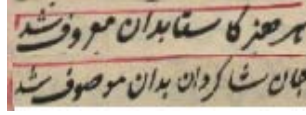 هر هنر کا ستا بدان معروف شد
جان شاکردان بدان موصوف شد